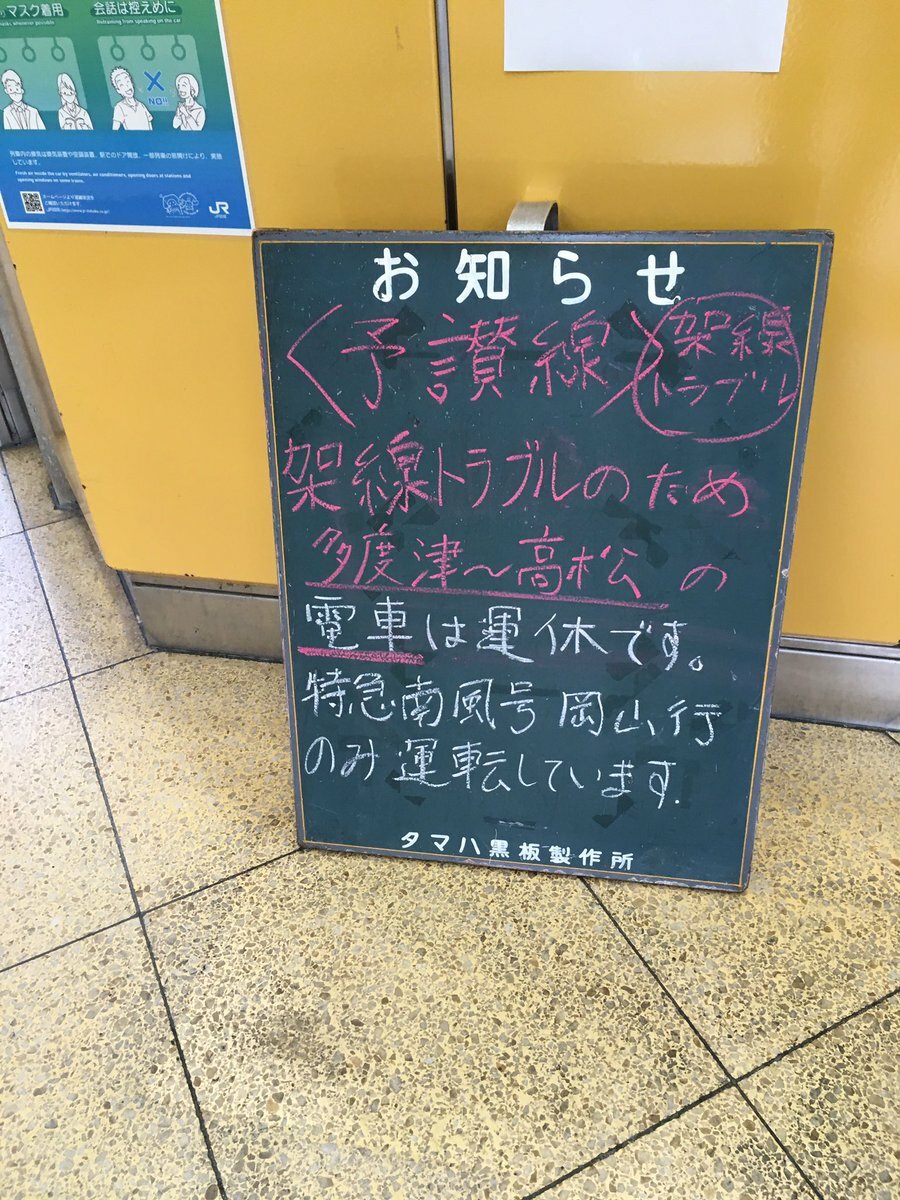 マスク着用
会話は控えめに
Refraining from speaking on the car
NO!!
列車内の換気は換気装置や空調装置、駅でのドア開放、一部列車の窓開けにより、実施
しています。
Fresh air inside the car by ventilators, air conditionars, opening doors at stations and
opening windows on some trains.
JR
お知らせ
〈予讃線〉
架線
トラブル
架線トラブルのため
多度津〜高松の
電車は運休です。
特急南風号岡山行
のみ運転しています.
タマハ黒板製作所